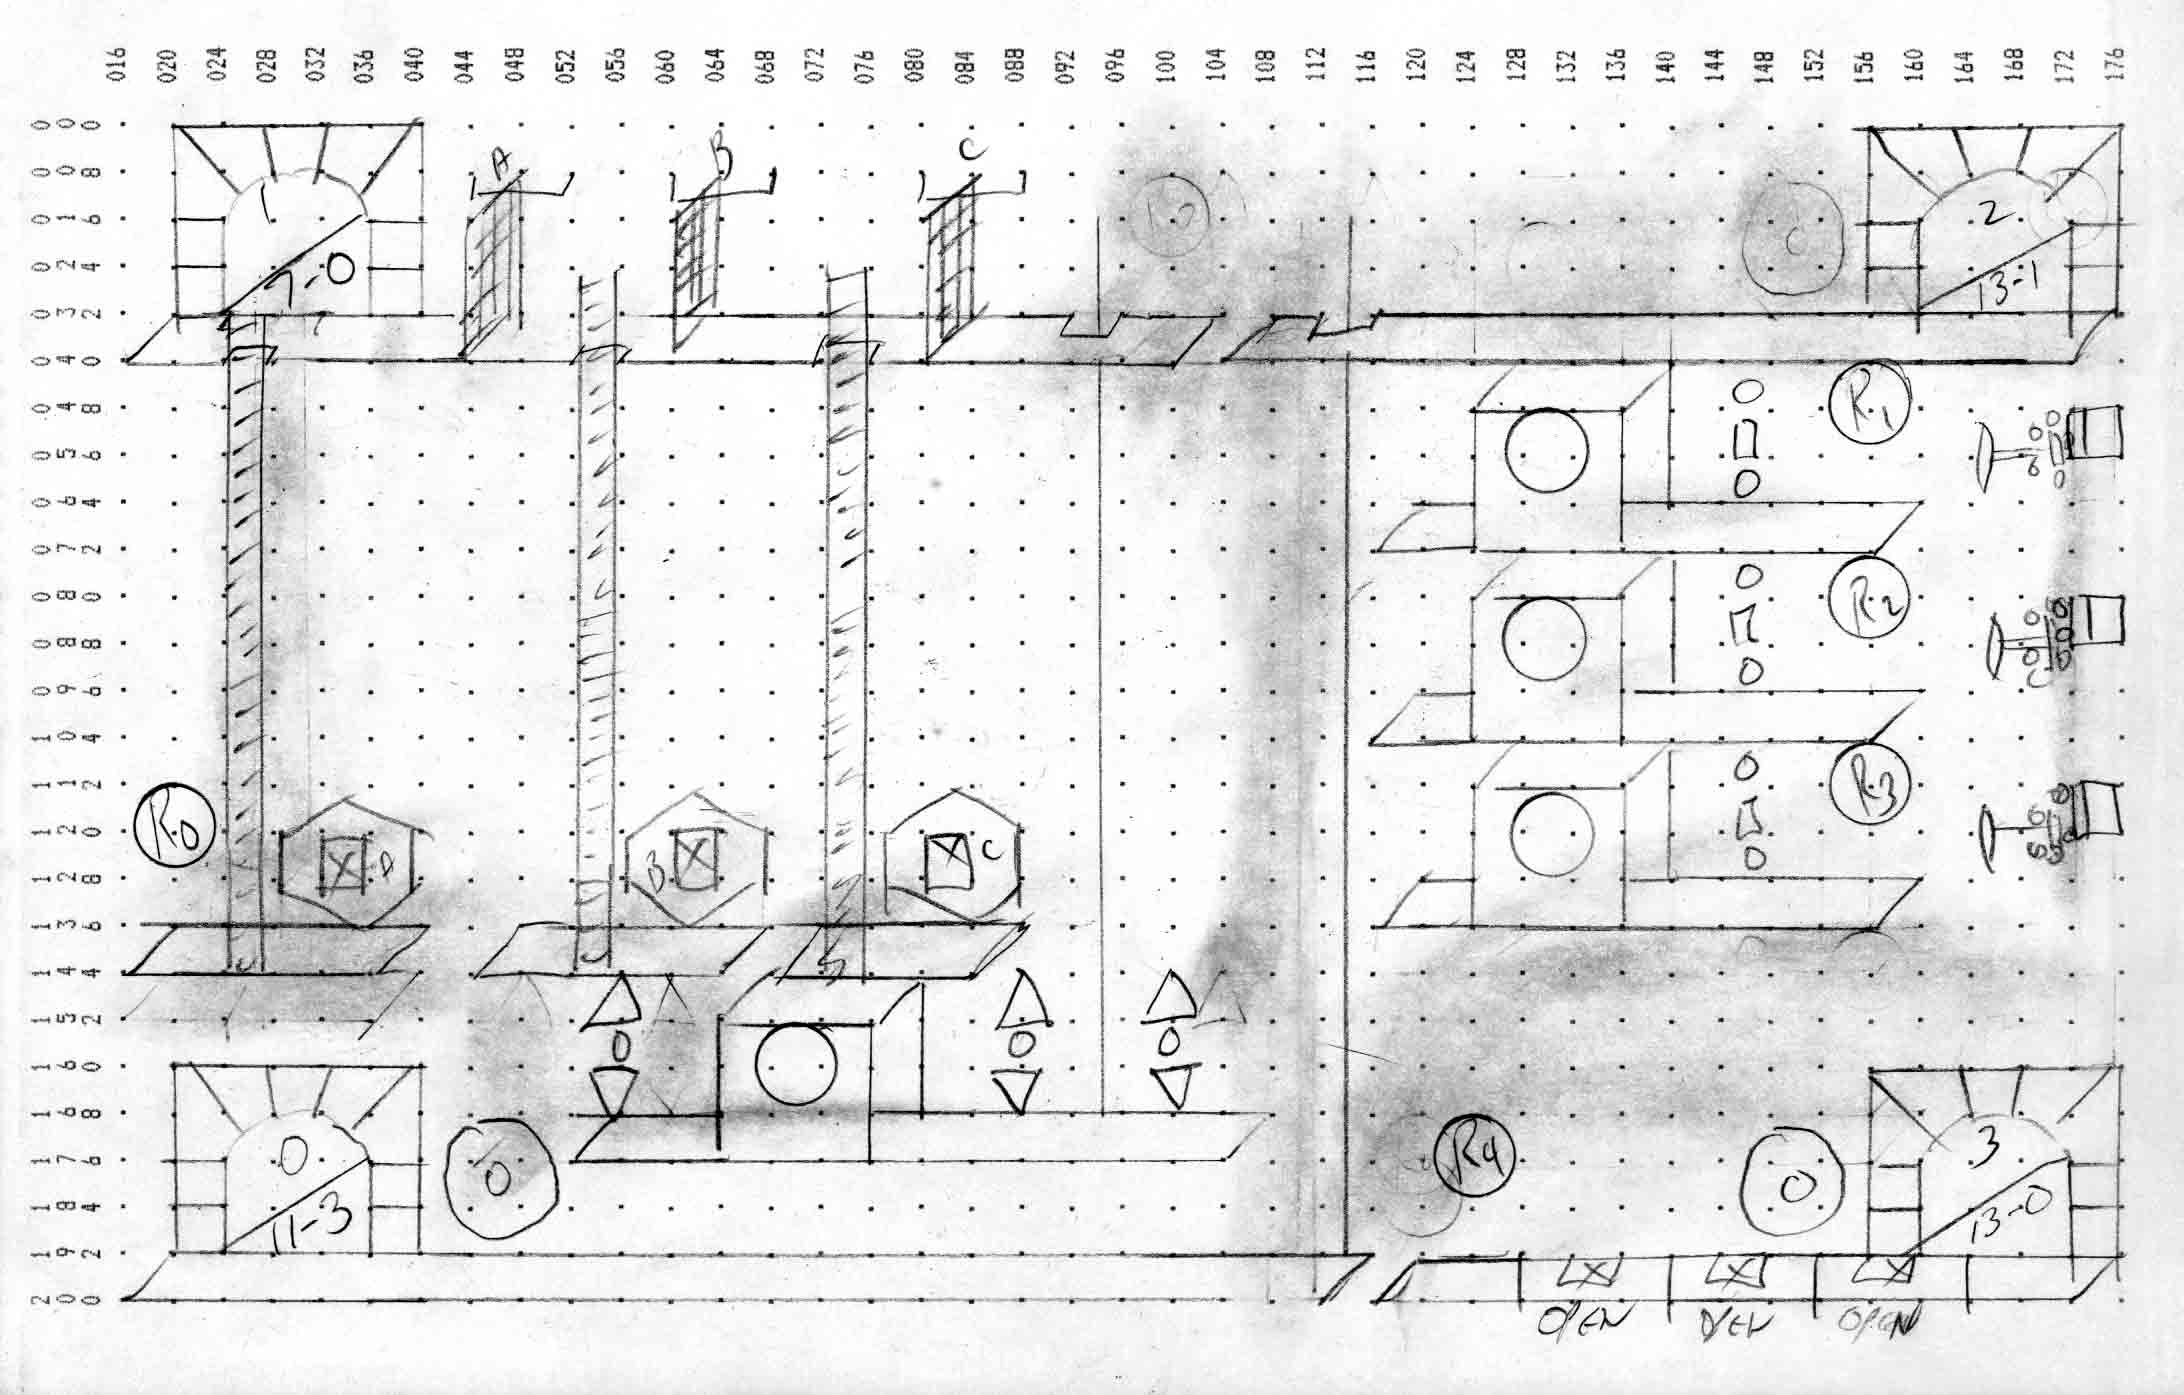 016 020 024 028 032 036 040 044 048 052 056 060 064 068 072 076 080 084 088 092 096 100 104 108 112 116 120 124 128 132 136 140 144 148 152 156 160 164 168 172 176
000
008
016
024
032
040
048
056
064
072
080
088
096
104
112
120
128
136
144
152
160
168
176
184
192
200
A B C
1
7-0
2
13-1
R1
R2
R3
R0
B C
0
11-3
0
R4
0
3
13-0
OPEN OPEN